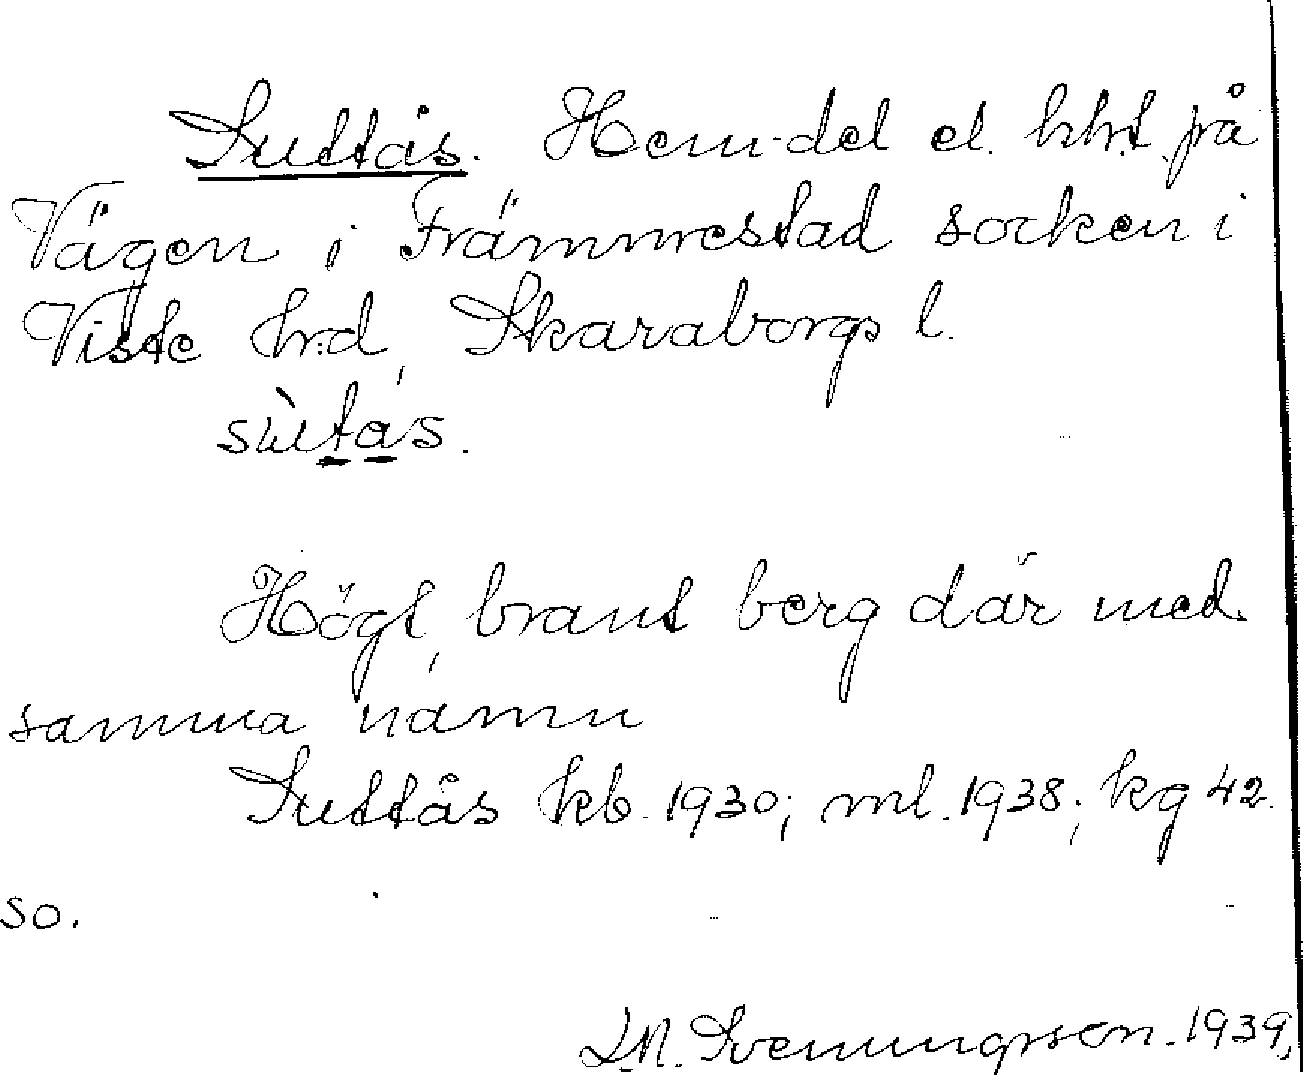 Suttås. Hem.del el. hht på
Vägen i Främmestad socken i
Viste hrd, Skaraborgs l.
sùtás.
Högt, brant berg där med
samma namn
Suttås kb. 1930; ml. 1938; kg 42.
so.
Svenungsson. 1939,